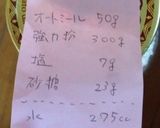 オートミール 50g
強力粉 300g
塩 7g
砂糖 23g
水 275cc